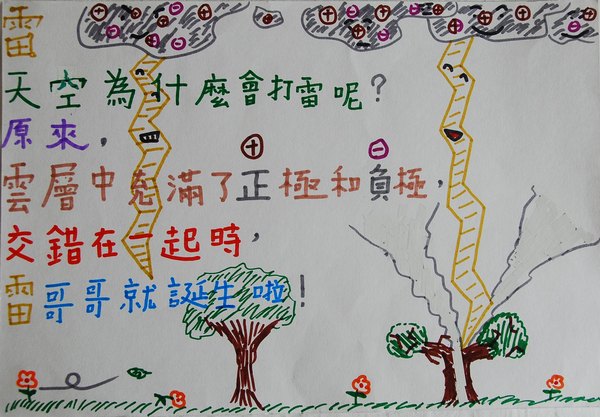 雷
天空為什麼會打雷呢?
原來,
雲層中充滿了正極和負極,
交錯在一起時,
雷哥哥就誕生啦!